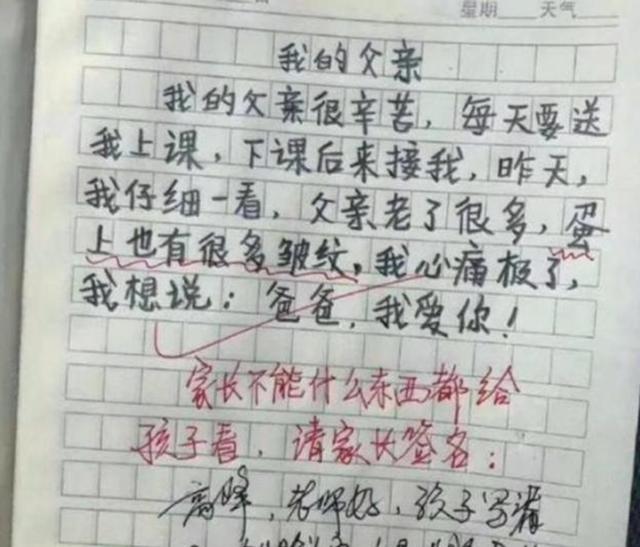 星期 天气
我的父亲
我的父亲很辛苦，每天要送
我上课，下课后来接我，昨天，
我仔细一看，父亲老了很多，蛋
上也有很多皱纹，我心痛极了，
我想说：爸爸，我爱你！
家长不能什么东西都给
孩子看，请家长签名：
高峰，老师好，孩子写